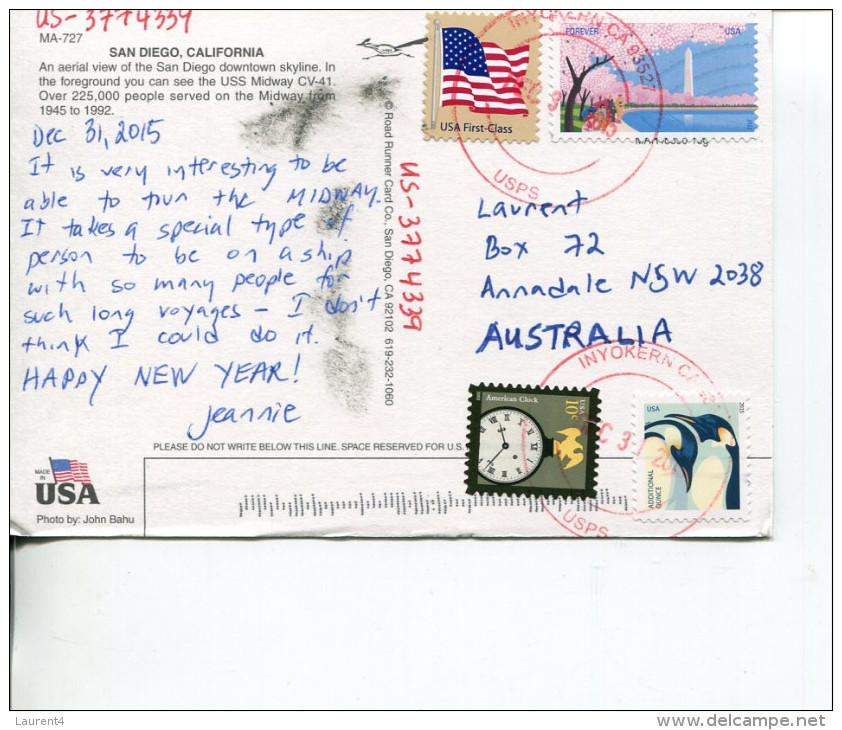 US-3774339
MA-727
SAN DIEGO, CALIFORNIA
An aerial view of the San Diego downtown skyline. In
the foreground you can see the USS Midway CV-41.
Over 225,000 people served on the Midway from
1945 to 1992.
Dec 31, 2015
It is very interesting to be
able to tour the MIDWAY.
It takes a special type of
person to be on a ship
with so many people for
such long voyages - I don't
think I could do it.
HAPPY NEW YEAR!
Jeannie
© Road Runner Card Co., San Diego, CA 92102 619-232-1060
US-3774339
USA First-Class
FOREVER USA
INYOKERN CA 93527
USPS
Laurent
Box 72
Annadale NSW 2038
AUSTRALIA
American Clock
USA 10c
INYOKERN CA
DEC 31 20
USPS
USA
2015
ADDITIONAL
OUNCE
PLEASE DO NOT WRITE BELOW THIS LINE. SPACE RESERVED FOR U.S.
MADE IN
USA
Photo by: John Bahu
Laurent4
www.delcampe.net